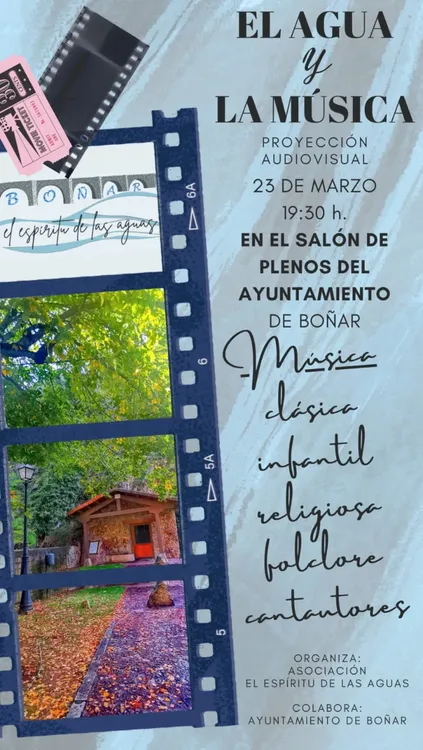 EL AGUA
y
LA MÚSICA
PROYECCIÓN
AUDIOVISUAL
23 DE MARZO
19:30 h.
EN EL SALÓN DE
PLENOS DEL
AYUNTAMIENTO
DE BOÑAR
Música
clásica
infantil
religiosa
folclore
cantautores
ORGANIZA:
ASOCIACIÓN
EL ESPÍRITU DE LAS AGUAS
COLABORA:
AYUNTAMIENTO DE BOÑAR
MOVIE TICKET
BOÑAR
el espíritu de las aguas
6A
6
5A
5